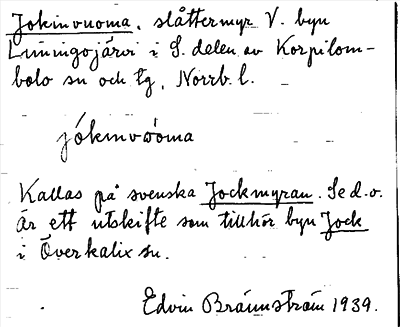 Jokinvuoma, slåttermyr V. byn
Limingojärvi i S. delen av Korpilom-
bolo sn och tg, Norrb. l.
jókinvuoma
Kallas på svenska Jockmyran. Se d. o.
Är ett utskifte som tillhör byn Jock
i Överkalix sn.
Edvin Brännström 1939.